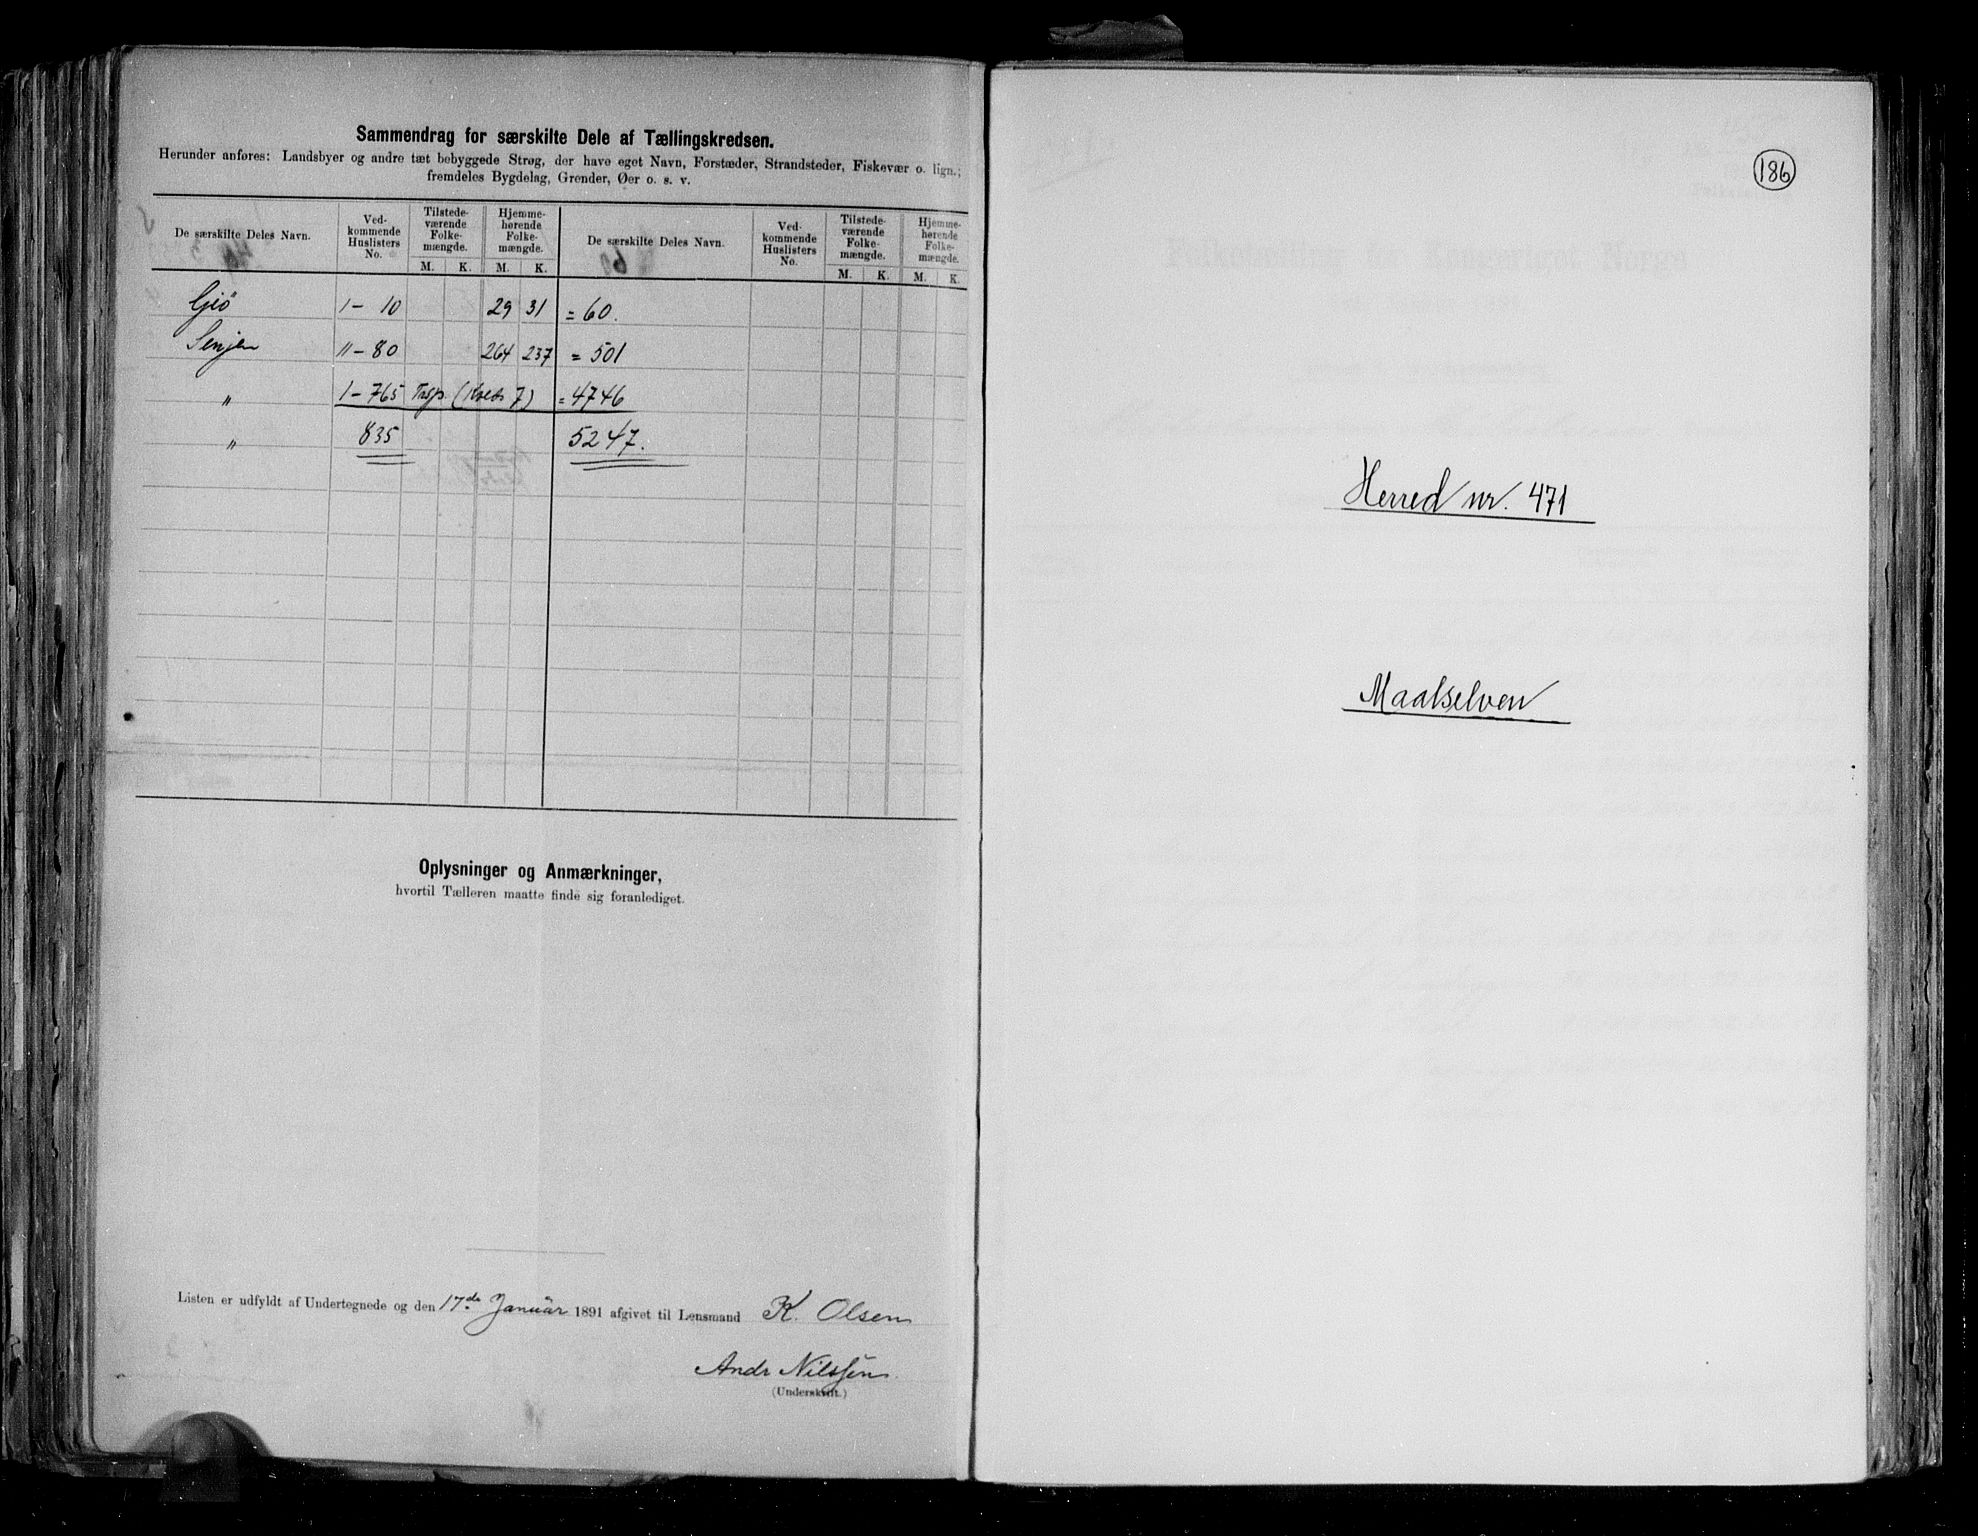 Sammendrag for særskilte Dele af Tællingskredsen.
Herunder anføres: Landsbyer og andre tæt bebyggede Strøg, der have eget Navn, Forstæder, Strandsteder, Fiskevær o. lign.;
fremdeles Bygdelag, Grender, Øer o. s. v.
De særskilte Deles Navn. Ved-kommende Huslisters No. Tilstede-værende Folke-mængde. Hjemme-hørende Folke-mængde. De særskilte Deles Navn. Ved-kommende Huslisters No. Tilstede-værende Folke-mængde. Hjemme-hørende Folke-mængde.
M. K. M. K. M. K. M. K.
Giö 1 - 10 29 31 = 60.
Senjen " - 80 264 237 = 501
" 1 - 765 (Kreds 7) = 4746
" 835 5247.
Oplysninger og Anmærkninger,
hvortil Tælleren maatte finde sig foranlediget.
Listen er udfyldt af Undertegnede og den 17de Januar 1891 afgivet til Lensmand K. Olsen
Andr Nilssen
(Underskrift.)
186
Herred nr. 471
Maalselven